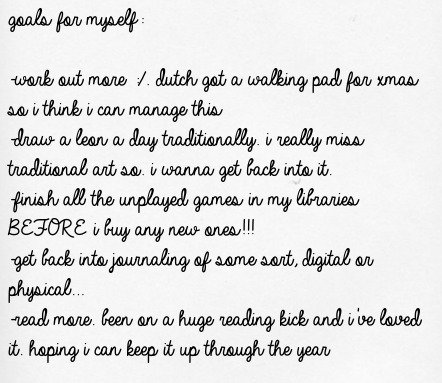 goals for myself:
-work out more :/. dutch got a walking pad for xmas
so i think i can manage this
-draw a leon a day traditionally. i really miss
traditional art so. i wanna get back into it.
-finish all the unplayed games in my libraries
BEFORE i buy any new ones!!!
-get back into journaling of some sort, digital or
physical...
-read more. been on a huge reading kick and i've loved
it. hoping i can keep it up through the year